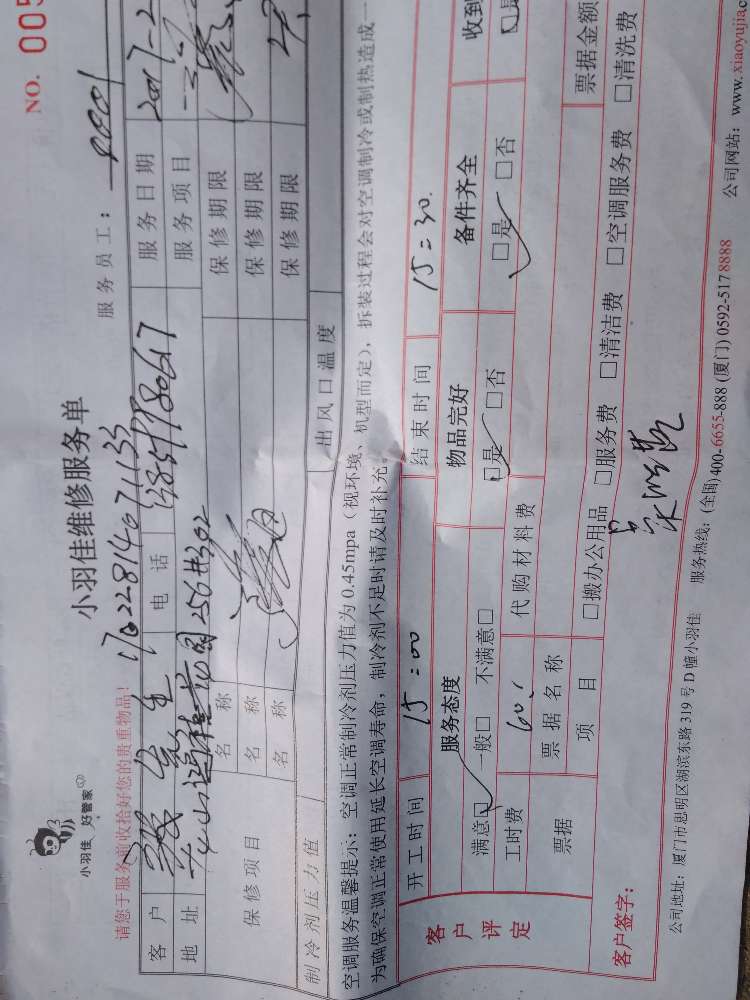 小羽佳 好管家
小羽佳维修服务单
NO. 005
请您于服务前收拾好您的贵重物品！
17022814071133
服务员工：
客户
电话
服务日期 2017-2
地址
256#302
服务项目
保修项目
名称
保修期限
名称
保修期限
名称
保修期限
制冷剂压力值
出风口温度
空调服务温馨提示：空调正常制冷剂压力值为0.45mpa（视环境、机型而定），拆装过程会对空调制冷或制热造成一
为确保空调正常使用延长空调寿命，制冷剂不足时请及时补充。
客户评定
开工时间 15:00 结束时间 15:30.
服务态度 物品完好 备件齐全 收到
满意□ 一般□ 不满意□ □是 □否 □是 □否 □是
工时费 60 代购材料费
票据 票据名称 票据金额
项目 □搬办公用品 □服务费 □清洁费 □空调服务费 □清洗费
客户签字：
公司地址：厦门市思明区湖滨东路319号D幢小羽佳 服务热线：(全国)400-6655-888 (厦门) 0592-5178888 公司网站：www.xiaoyujia.c